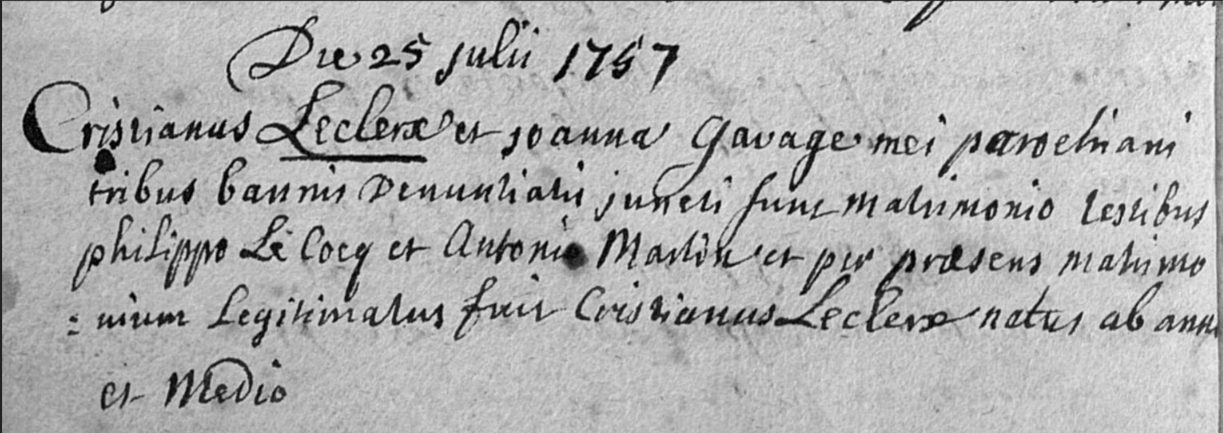 Die 25 julii 1757
Cristianus Leclerx et joanna Gavage mei parochiani
tribus bannis denuntiatis juncti sunt matrimonio testibus
philippo Le Cocq et Antonio Martin et per præsens matrimo
= nium Legitimatus fuit Cristianus Leclerx natus ab anno
et Medio